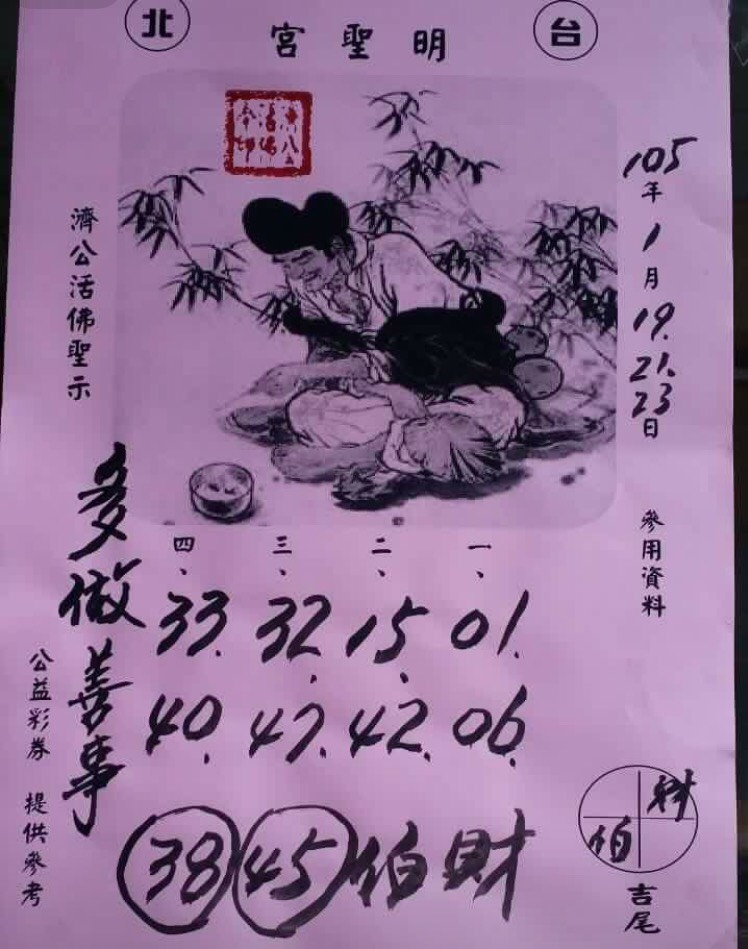 台北
明聖宮
105年1月19.21.23日
參用資料
濟公活佛聖示
一、
01.
06.
二、
15.
42.
三、
32.
47.
四、
33.
40.
財伯
45
38
多做善事
公益彩券 提供參考
財
伯
吉尾